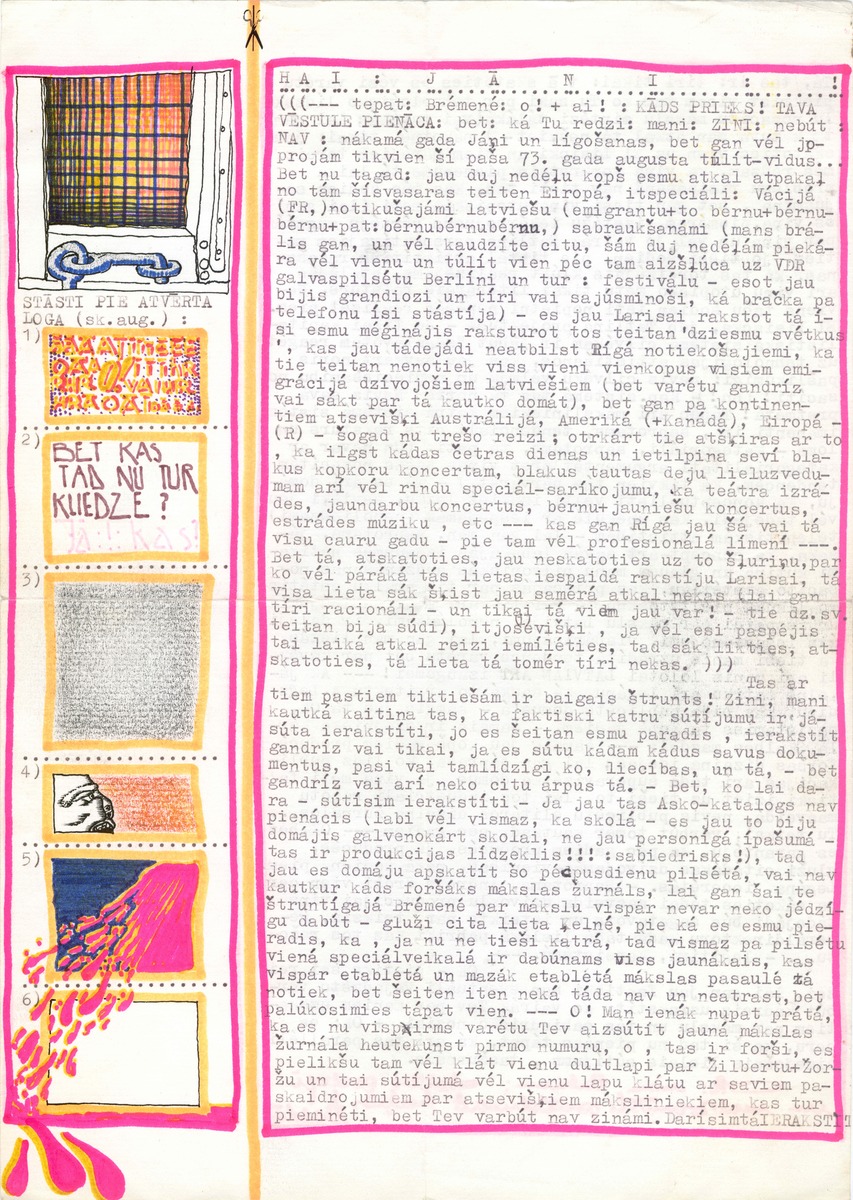 STĀSTI PIE ATVĒRTA
LOGA (sk.aug.) :
1)
2)
BET KAS
TAD NU TUR
KLIEDZE ?
Jā ! : kas ?
3)
4)
5)
6)
H A I : J Ā N I : !
(((--- tepat: Brémené: o! + ai! : KĀDS PRIEKS! TAVA
VĒSTULE PIENĀCA: bet: ká Tu redzi: mani: ZINI: nebút :
NAV : nákamá gada Jáņi un lígošanas, bet gan vél jp-
projám tikvien ší paša 73. gada augusta túlít-vidus...
Bet nu tagad: jau duj nedéļu kopš esmu atkal atpakaļ
no tám šísvasaras teiten Eiropá, itspeciáli: Vácijá
(FR,)notikušajámi latviešu (emigrantu+to bérnu+bérnu-
bérnu+pat:bérnubérnubérnu,) sabraukšanámi (mans brá-
lis gan, un vél kaudzíte citu, šám duj nedéļám pieká-
ra vél vienu un túlít vien péc tam aizšļúca uz VDR
galvaspilsétu Berlíni un tur : festiválu - esot jau
bijis grandiozi un tíri vai sajúsminoši, ká bračka pa
telefonu ísi stástíja) - es jau Larisai rakstot tá í-
si esmu méģinájis raksturot tos teitan 'dziesmu svétkus
', kas jau tádejádi neatbilst Rígá notiekošajiemi, ka
tie teitan nenotiek viss vieni vienkopus visiem emi-
grácijá dzívojošiem latviešiem (bet varétu gandríz
vai sákt par tá kautko domát), bet gan pa kontinen-
tiem atseviški Austrálijá, Ameriká (+Kanádá), Eiropá -
(R) - šogad nu trešo reizi ; otrkárt tie atšķiras ar to
, ka ilgst kádas četras dienas un ietilpina seví bla-
kus kopkoru koncertam, blakus tautas deju lieluzvedu-
mam arí vél rindu speciál-saríkojumu, ká teátra izrá-
des, jaundarbu koncertus, bérnu+jauniešu koncertus,
estrádes múziku , etc --- kas gan Rígá jau šá vai tá
visu cauru gadu - pie tam vél profesionálá límení ---.
Bet tá, atskatoties, jau neskatoties uz to šļuriņu,par
ko vél páráká tás lietas iespaidá rakstíju Larisai, tá
visa lieta sák šķist jau samérá atkal nekas (lai gan
tíri racionáli - un tikai tá viem jau var! - tie dz.sv.
teitan bija súdi), itjoseviški , ja vél esi paspéjis
tai laiká atkal reizi iemíléties, tad sák likties, at-
skatoties, tá lieta tá tomér tíri nekas. )))
Tas ar
tiem pastiem tiktiešám ir baigais štrunts! Zini, mani
kautká kaitina tas, ka faktiski katru sútíjumu ir já-
súta ierakstíti, jo es šeitan esmu paradis , ierakstít
gandríz vai tikai, ja es sútu kádam kádus savus doku-
mentus, pasi vai tamlídzígi ko, liecíbas, un tá, - bet
gandríz vai arí neko citu árpus tá. - Bet, ko lai da-
ra - sútísim ierakstíti - Ja jau tas Asko-katalogs nav
pienácis (labi vél vismaz, ka skolá - es jau to biju
domájis galvenokárt skolai, ne jau personígá ípašumá -
tas ir produkcijas lídzeklis!!! :sabiedrisks!), tad
jau es domáju apskatít šo pécpusdienu pilsétá, vai nav
kautkur káds foršáks mákslas žurnáls, lai gan šai te
štruntígajá Brémené par mákslu vispár nevar neko jédzí-
gu dabút - gluži cita lieta Ķelné, pie ká es esmu pie-
radis, ka , ja nu ne tieši katrá, tad vismaz pa pilsétu
viená speciálveikalá ir dabúnams viss jaunákais, kas
vispár etabléta un mazák etablétá mákslas pasaulé tá
notiek, bet šeiten iten neká táda nav un neatrast,bet
palúkosimies tápat vien. --- O! Man ienák nupat prátá,
ka es nu vispxirms varétu Tev aizsútít jauná mákslas
žurnála heutekunst pirmo numuru, o , tas ir forši, es
pielikšu tam vél klát vienu dultlapi par Žilbertu+Žor-
žu un tai sútíjumá vél vienu lapu klátu ar saviem pa-
skaidrojumiem par atsevišķiem máksliniekiem, kas tur
pieminéti, bet Tev varbút nav zinámi.DarísimtáIERAKSTÍT